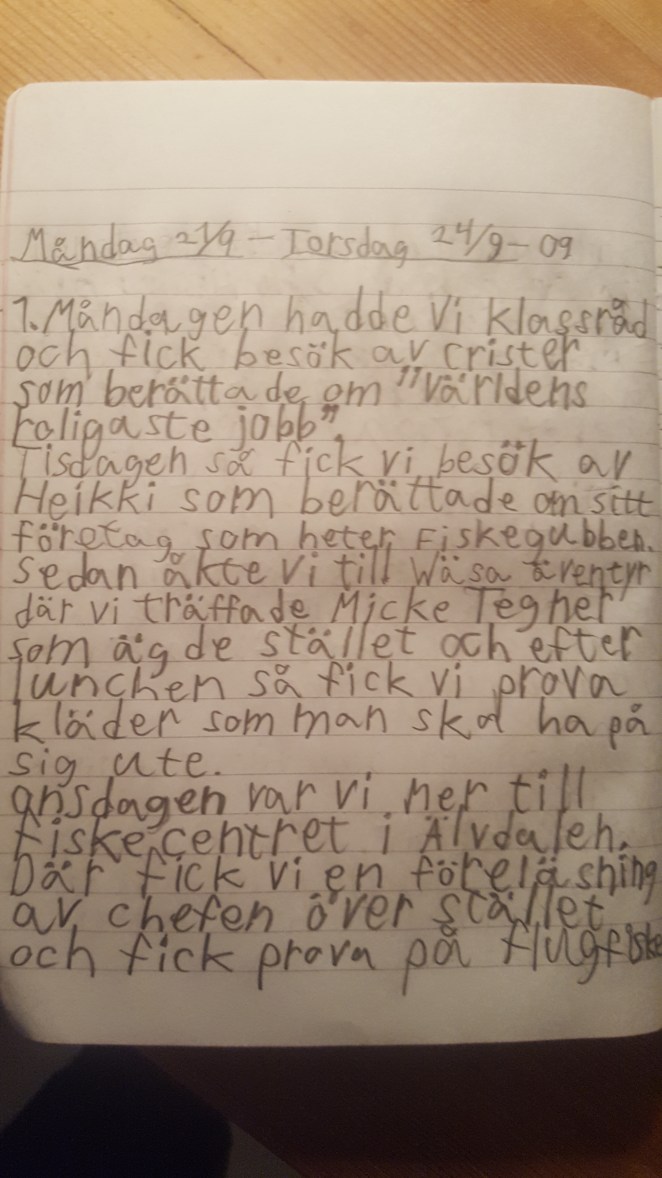 Måndag 21/9 - Torsdag 24/9-09
1. Måndagen hadde vi klassråd
och fick besök av crister
som berättade om "världens
roligaste jobb".
Tisdagen så fick vi besök av
Heikki som berättade om sitt
företag som heter Fiskegubben.
sedan åkte vi till Wäsa äventyr
där vi träffade Micke Tegner
som ägde stället och efter
lunchen så fick vi prova
kläder som man skal ha på
sig ute.
onsdagen var vi ner till
fiskecentret i Älvdalen.
Där fick vi en föreläsning
av chefen över stället
och fick prova på flugfiske